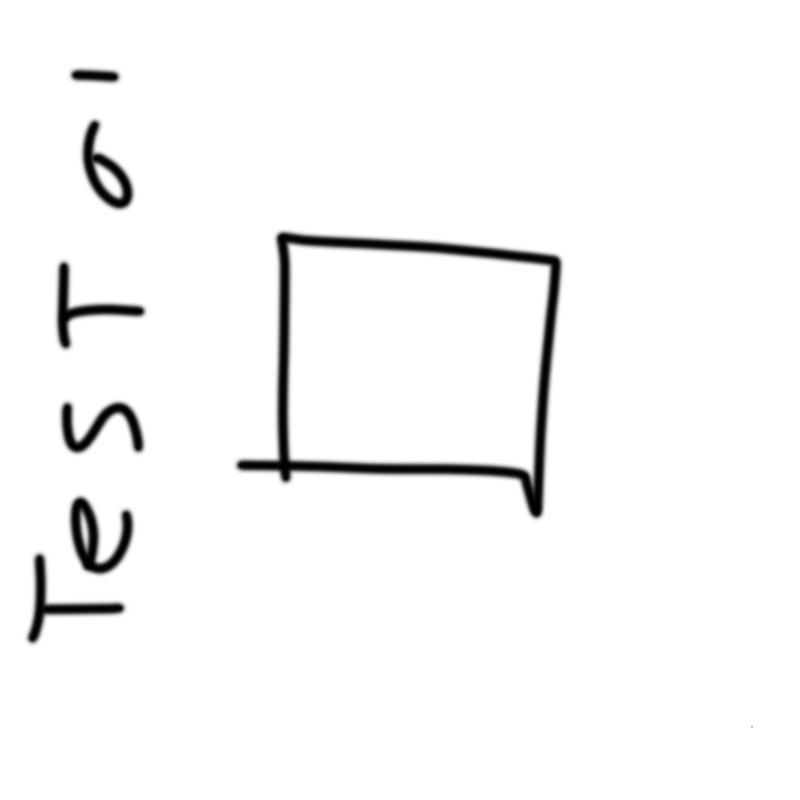 TesT 01